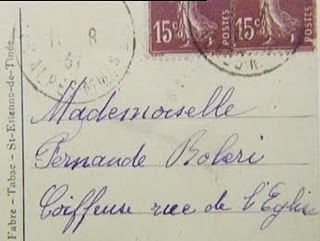 15c POSTES 15c POSTES
11 8
31
ALPES
Mademoiselle
Fernande Boleri
Coiffeuse rue de l'Eglise
Fabre – Tabac – St-Etienne-de-Tinée